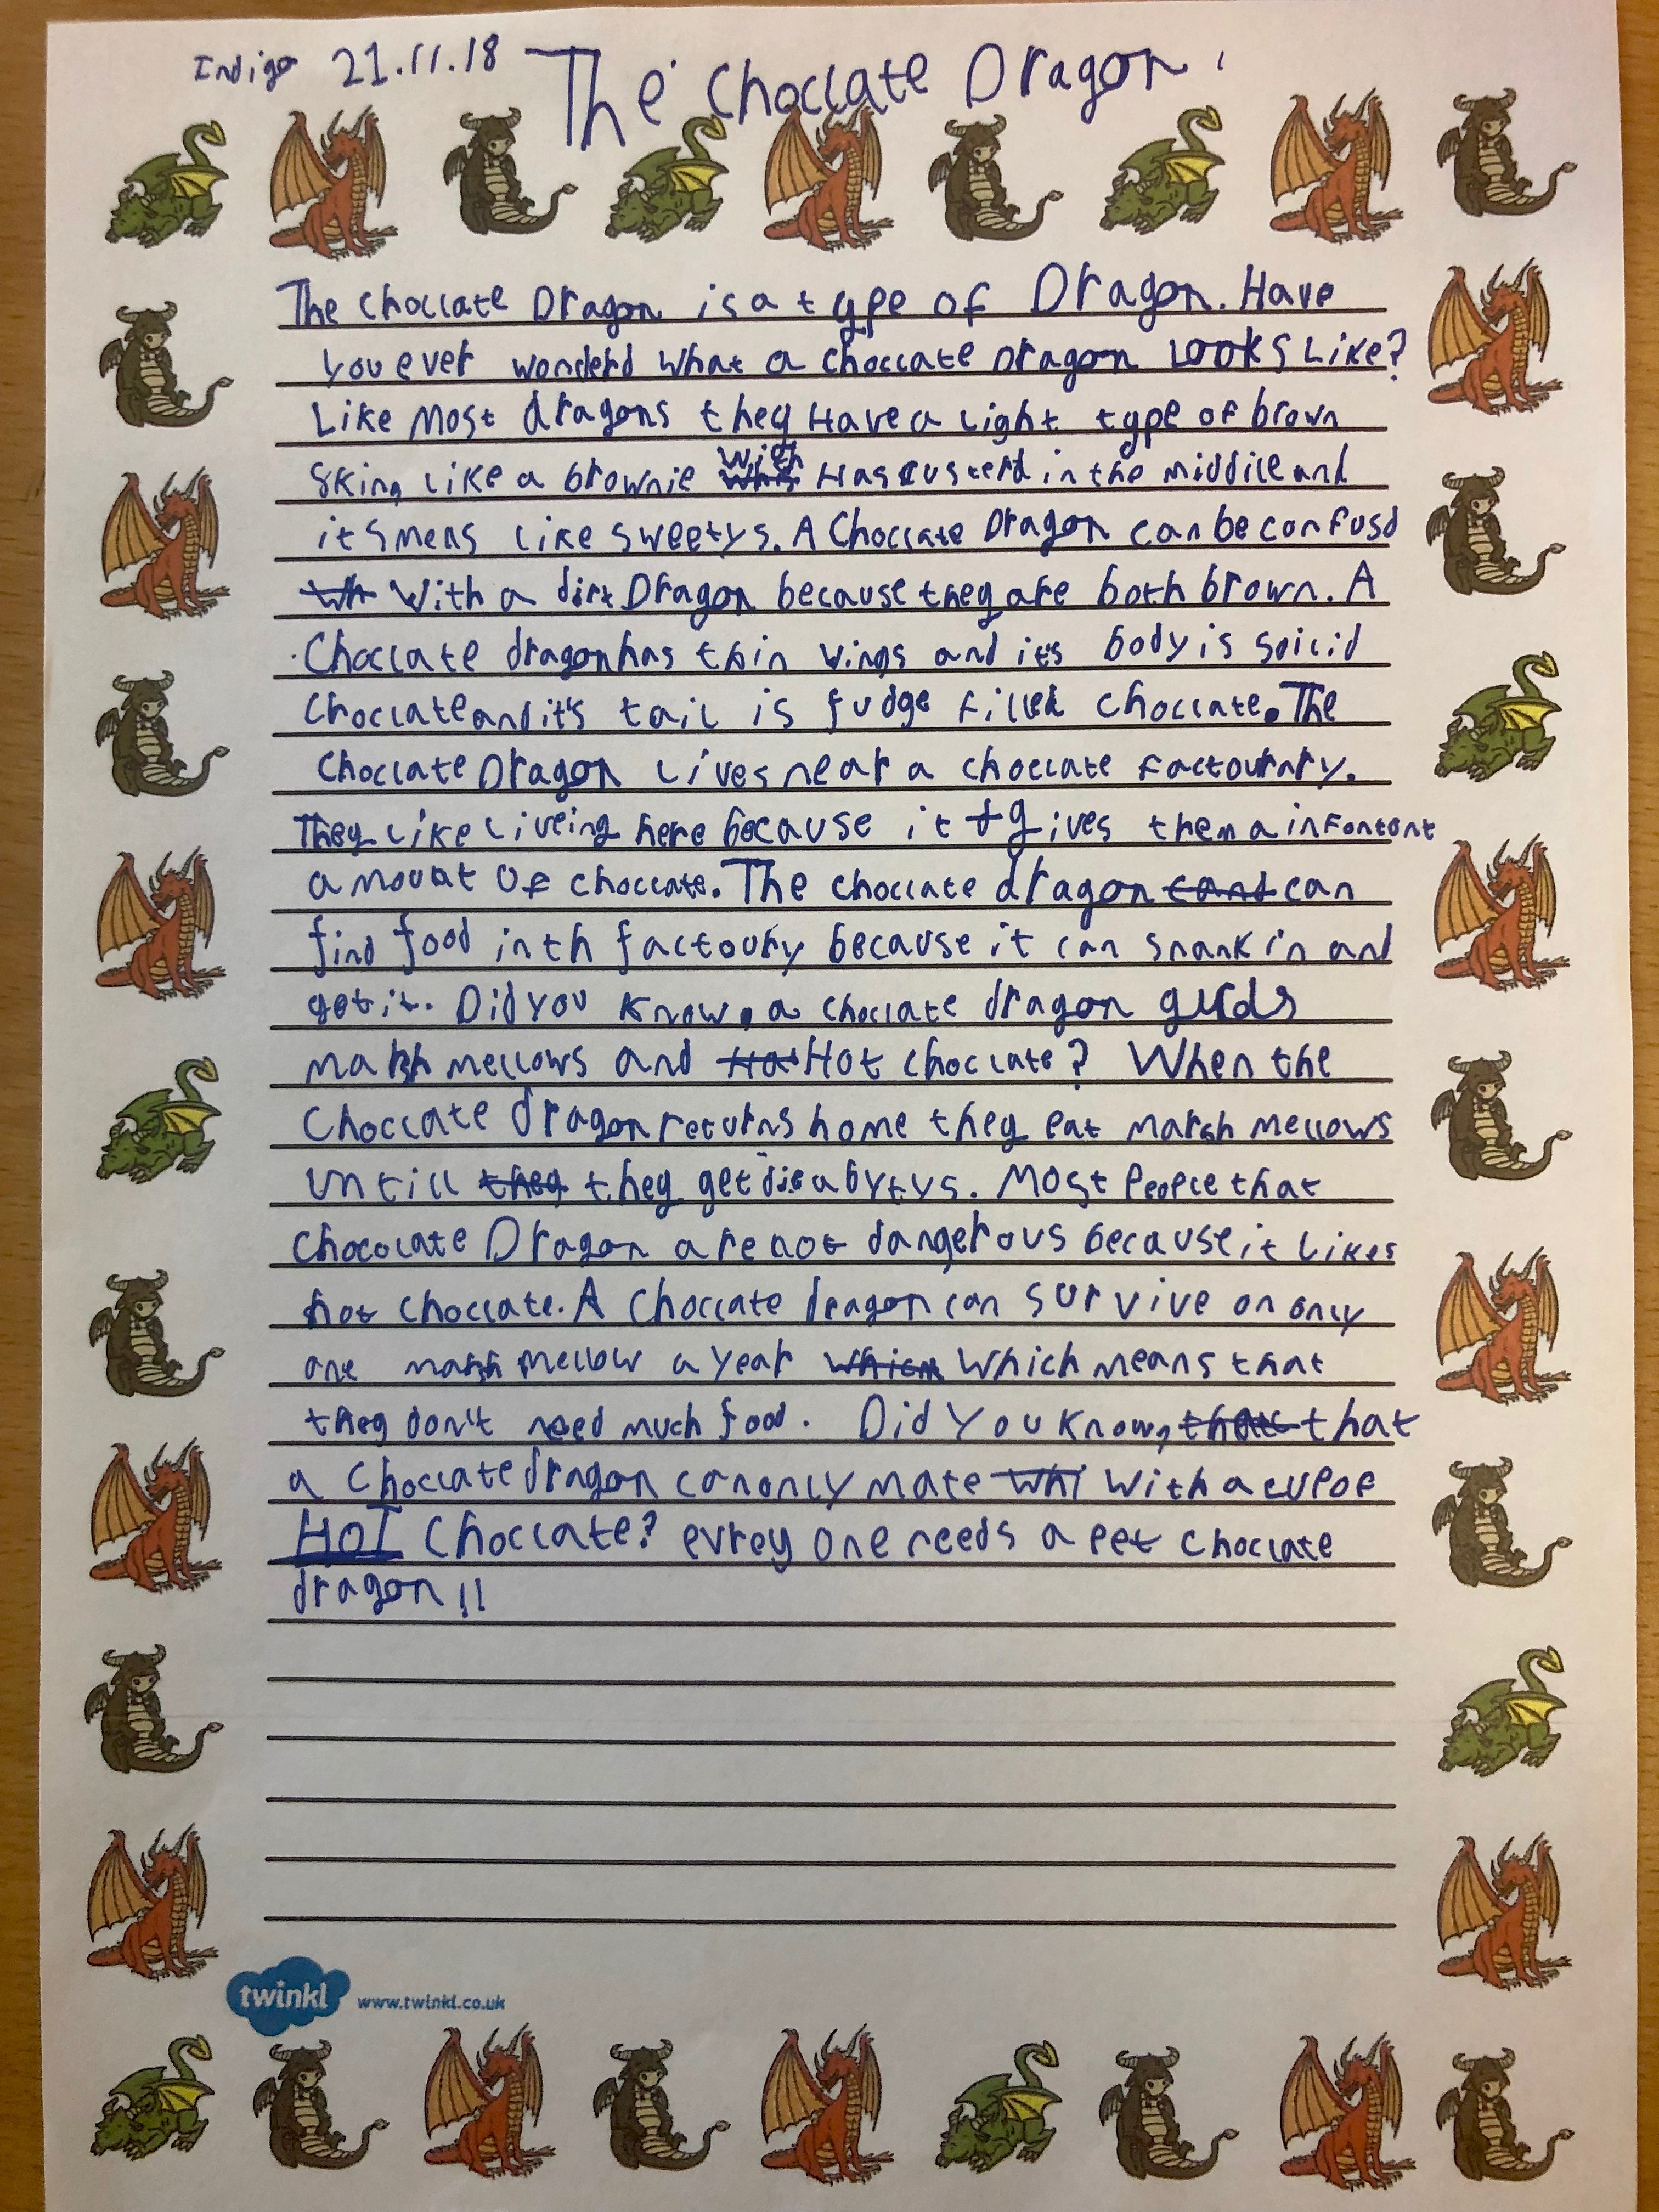 Indigo 21.11.18 The Choclate Dragon
The Choclate Dragon is a type of Dragon. Have
you ever wonderd what a choclate Dragon Looks Like?
Like Most dragons they Have a Light type of brown
Sking, Like a brownie with Has custerd in the middile and
it smens Like sweetys. A Choclate Dragon can be confusd
with a dirt Dragon because they are both brown. A
Choclate dragon has thin wings and it's body is solcid
Choclate and it's tail is fudge filled choclate. The
Choclate Dragon Lives near a choclate factourary.
They Like Liveing here because it gives them a infontont
amouat of choclate. The choclate dragon can
find food in th factoury because it can snank in and
get it. Did you know, a choclate dragon gurds
marsh mellows and Hot choclate? When the
Choclate dragon returns home they eat marsh mellows
untill they get diabytys. Most People that
Chocolate Dragon are not dangerous because it Likes
hot choclate. A Choclate dragon can survive on only
one marsh mellow a year which means that
they don't need much food. Did you know, that
a Choclate dragon can only mate with a cup of
HOT Choclate? evrey one needs a pet choclate
dragon !!
twinkl www.twinkl.co.uk